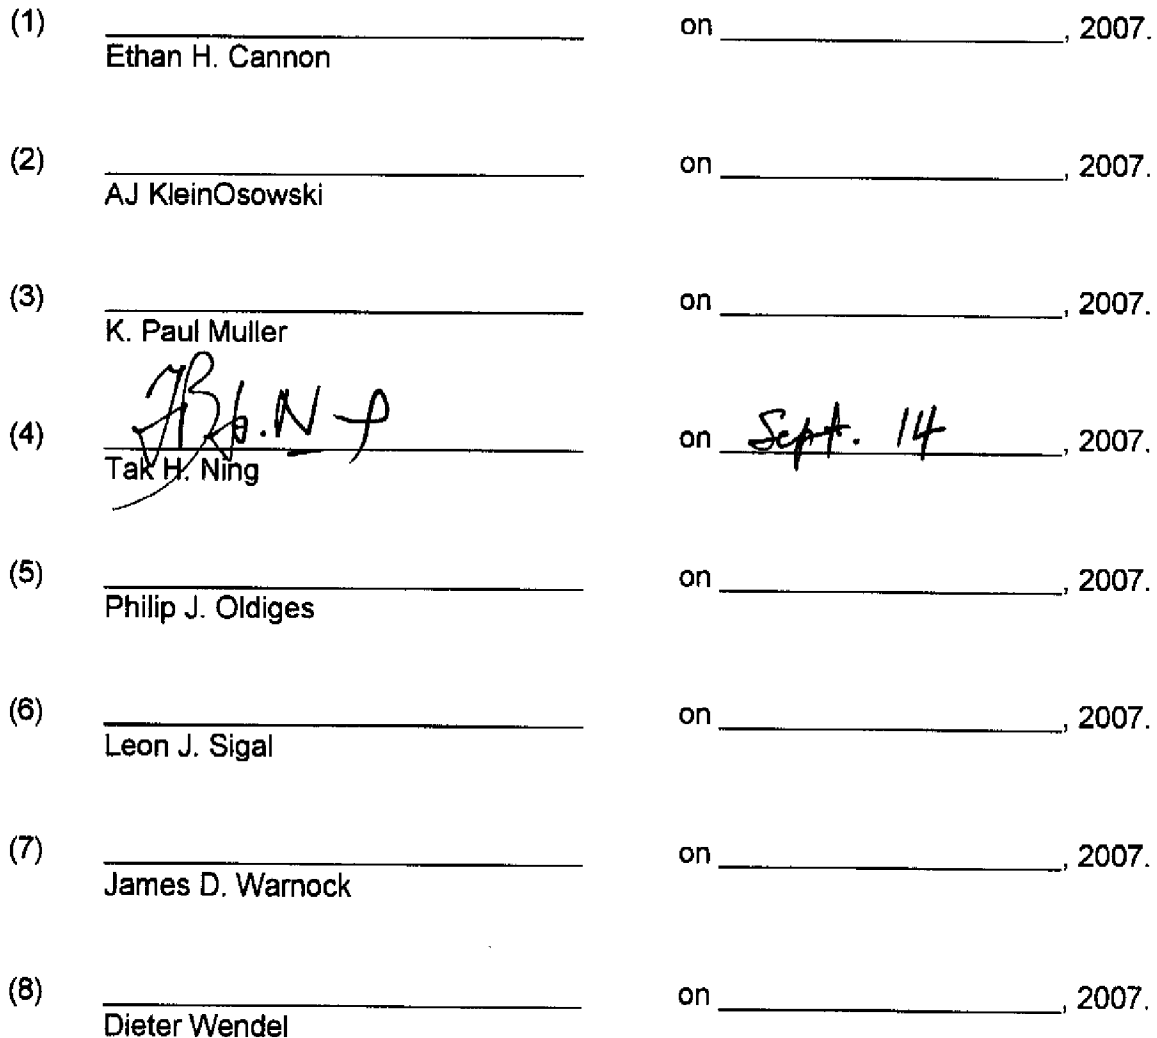 (1) on , 2007.
Ethan H. Cannon
(2) on , 2007.
AJ KleinOsowski
(3) on , 2007.
K. Paul Muller
(4) on Sept. 14 , 2007.
Tak H. Ning
(5) on , 2007.
Philip J. Oldiges
(6) on , 2007.
Leon J. Sigal
(7) on , 2007.
James D. Warnock
(8) on , 2007.
Dieter Wendel